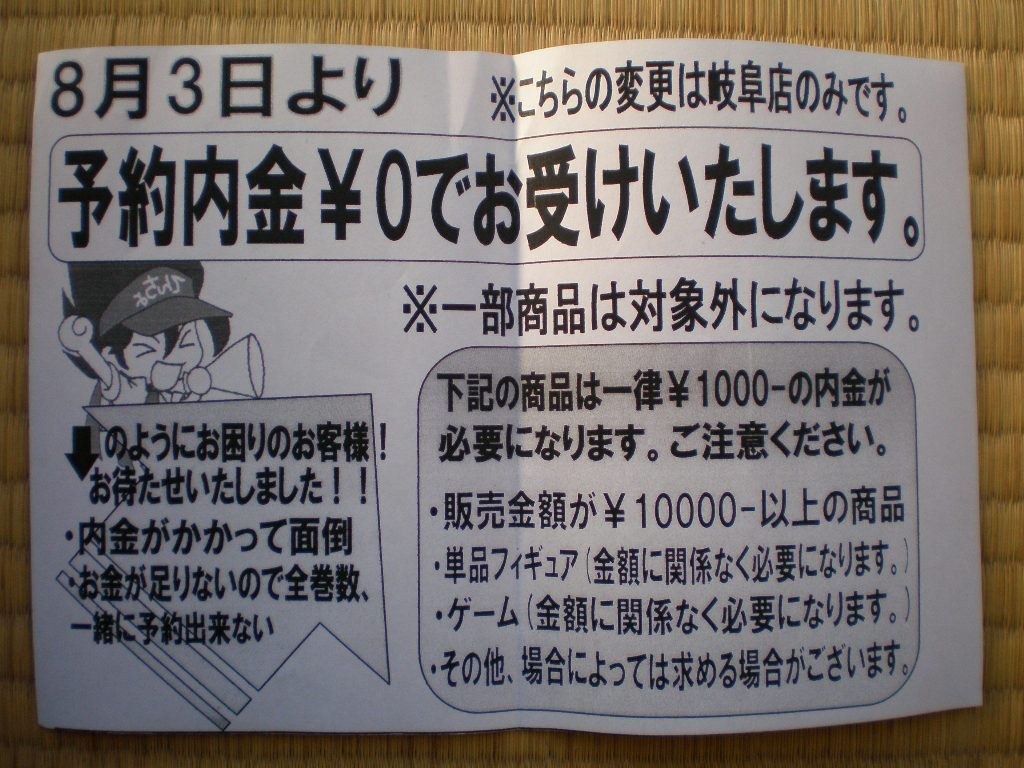 8月3日より
※こちらの変更は岐阜店のみです。
予約内金￥0でお受けいたします。
※一部商品は対象外になります。
下記の商品は一律￥1000-の内金が
必要になります。ご注意ください。
・販売金額が￥10000-以上の商品
・単品フィギュア(金額に関係なく必要になります。)
・ゲーム(金額に関係なく必要になります。)
・その他、場合によっては求める場合がございます。
⬇のようにお困りのお客様！
お待たせいたしました！！
・内金がかかって面倒
・お金が足りないので全巻数、
一緒に予約出来ない